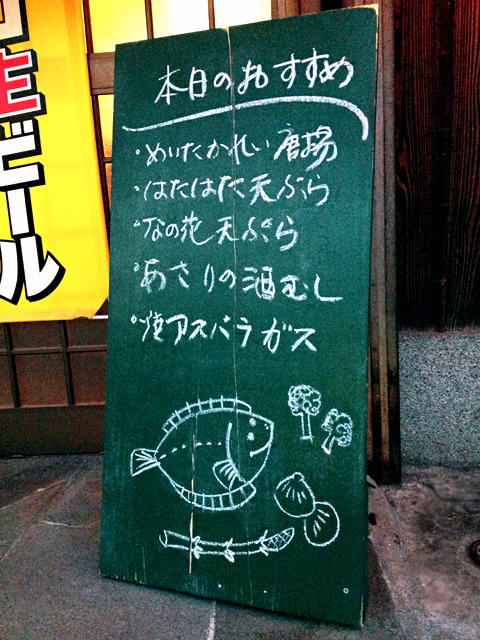 本日のおすすめ
めいたかれい 唐揚
はたはた天ぷら
なの花天ぷら
あさりの酒むし
アスパラガス
生ビール